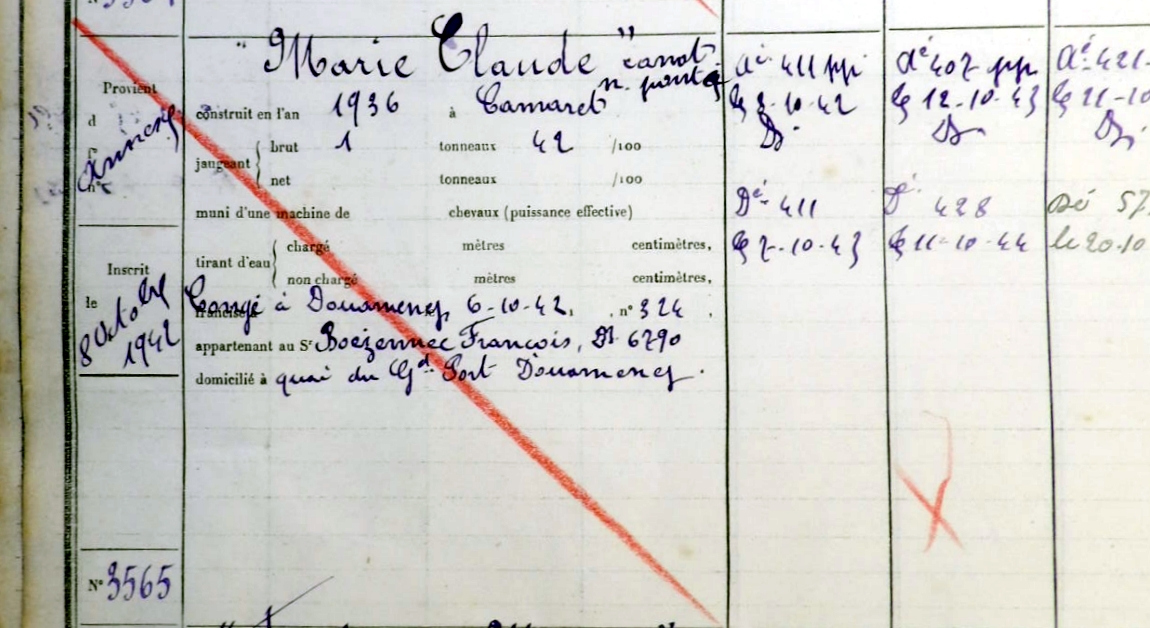 "Marie Claude" canot
n. ponté
Provient
d
n°
construit en l'an 1936 à Camaret
jaugeant { brut 1 tonneaux 42 /100
net tonneaux /100
muni d'une machine de chevaux (puissance effective)
tirant d'eau { chargé mètres centimètres,
non chargé mètres centimètres,
Inscrit
le
8 Octobre
1942
Congé à Douarnenez 6-10-42, n° 324 .
appartenant au Sr Boëzennec François, Dz 6290
domicilié à quai du Gd Port Douarnenez.
Aé 411 pp
le 3-10-42
Dé 411
le 7-10-43
Aé 407 pp
le 12-10-43
Dé 428
le 11-10-44
Aé 421
le 21-10
Dé 57
le 20.10
N° 3565